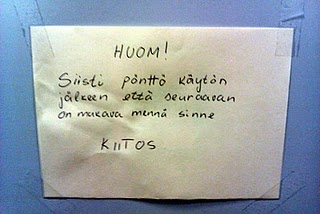 HUOM!
Siisti pönttö käytön
jälkeen että seuraavan
on mukava mennä sinne
KIITOS